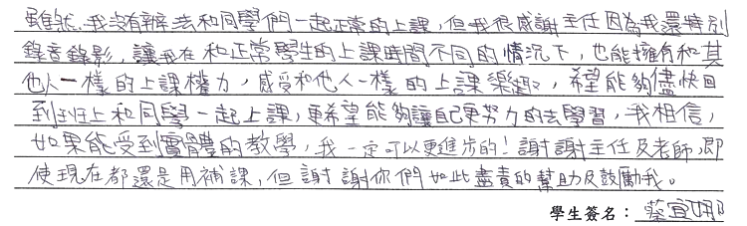 雖然,我沒有辦法和同學們一起正常的上課,但我很感謝主任因為我還特別
錄音錄影,讓我在和正常學生的上課時間不同的情況下,也能擁有和其
他人一樣的上課權力,感受和他人一樣的上課樂趣,希望能夠儘快回
到班上和同學一起上課,更希望能夠讓自己更努力的去學習,我相信,
如果能受到實體的教學,我一定可以更進步的!謝謝主任及老師,即
使現在都還是用補課,但謝謝你們如此盡責的幫助及鼓勵我。
學生簽名:蔡宜娜